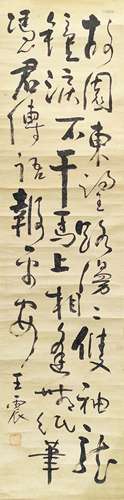 故園東望路漫漫雙袖龍
鍾淚不干馬上相逢無紙筆
憑君傳語報平安
王震